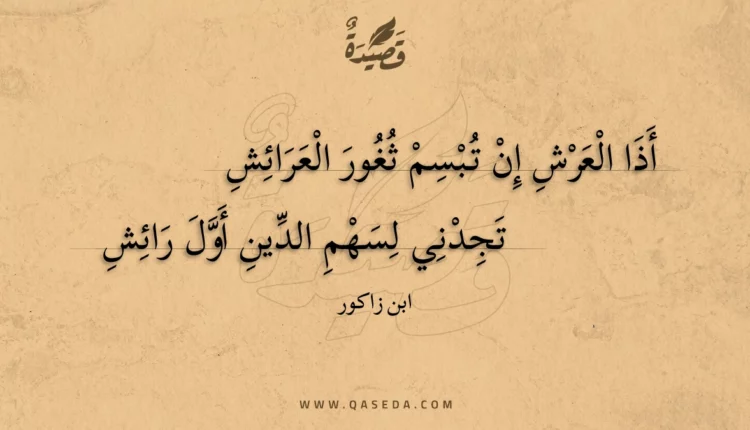 قَصِيْدَةٌ
أَذَا الْعَرْشِ إِنْ تُبْسِمْ ثُغُورَ الْعَرَائِشِ
تَجِدْنِي لِسَهْمِ الدِّينِ أَوَّلَ رَائِشِ
ابن زاكور
WWW.QASEDA.COM